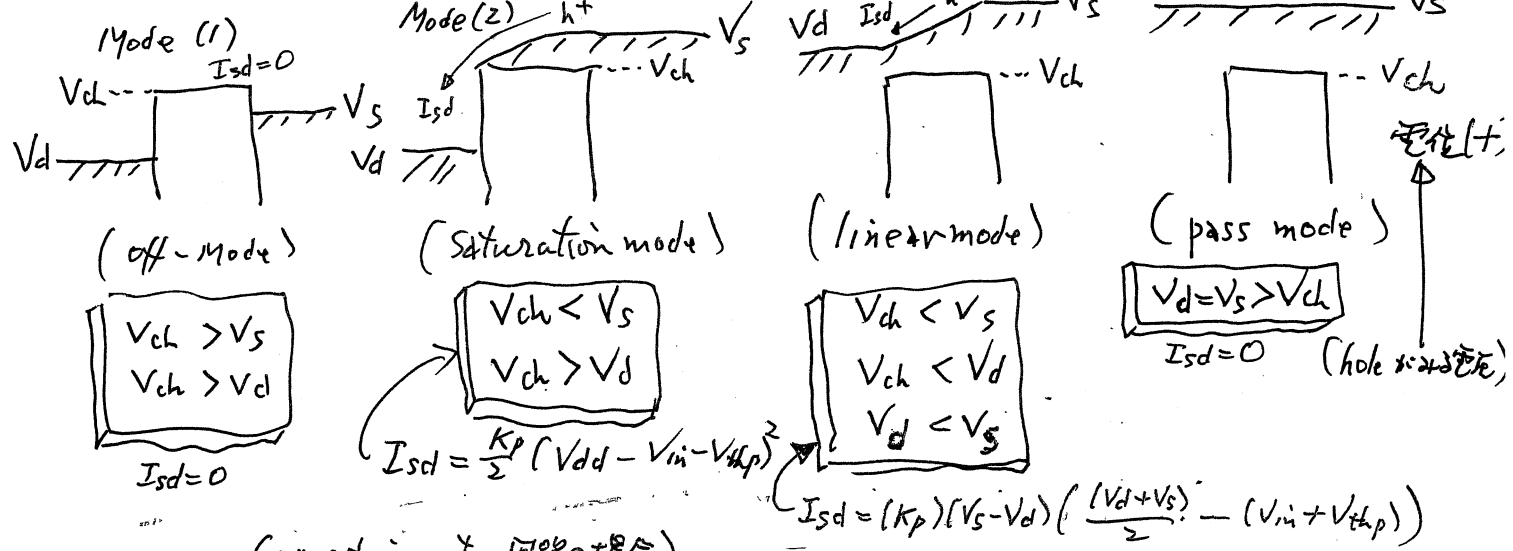 Mode (1)
Isd=0
Vch
Vs
Vd
(off-Mode)
Vch > Vs
Vch > Vd
Isd=0
Mode(2)
h+
Vs
Vch
Isd
Vd
(saturation mode)
Vch < Vs
Vch > Vd
Isd = Kp/2 (Vdd - Vin - Vthp)²
Vd
Isd
Vs
Vch
(linear mode)
Vch < Vs
Vch < Vd
Vd < Vs
Isd = (Kp)(Vs-Vd)((Vd+Vs)/2 - (Vin + Vthp))
Vs
Vch
(pass mode)
Vd=Vs>Vch
Isd=0
電位(+)
(holeがみる電圧)